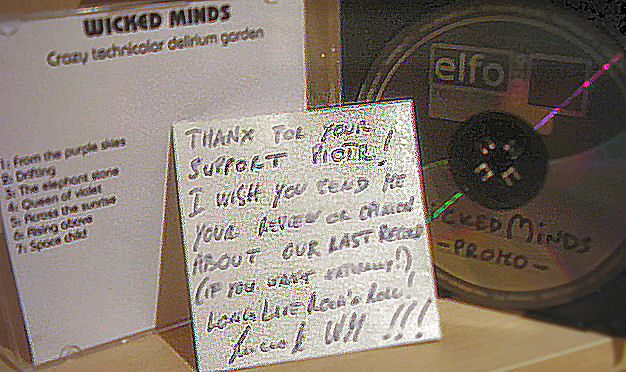 WICKED MINDS
Crazy technicolor delirium garden
1: From the purple skies
2: Drifting
3: The elephant stone
4: Queen of violet
5: Across the sunrise
6: Rising above
7: Space child
THANX FOR YOUR
SUPPORT PIOTR!
I WISH YOU SEND ME
YOUR REVIEW OR OPINION
ABOUT OUR LAST RECORD
(IF YOU WANT NATURALLY!)
LONG LIVE ROCK'N ROLL!
WM !!!
elfo
WICKED MINDS
-PROMO-